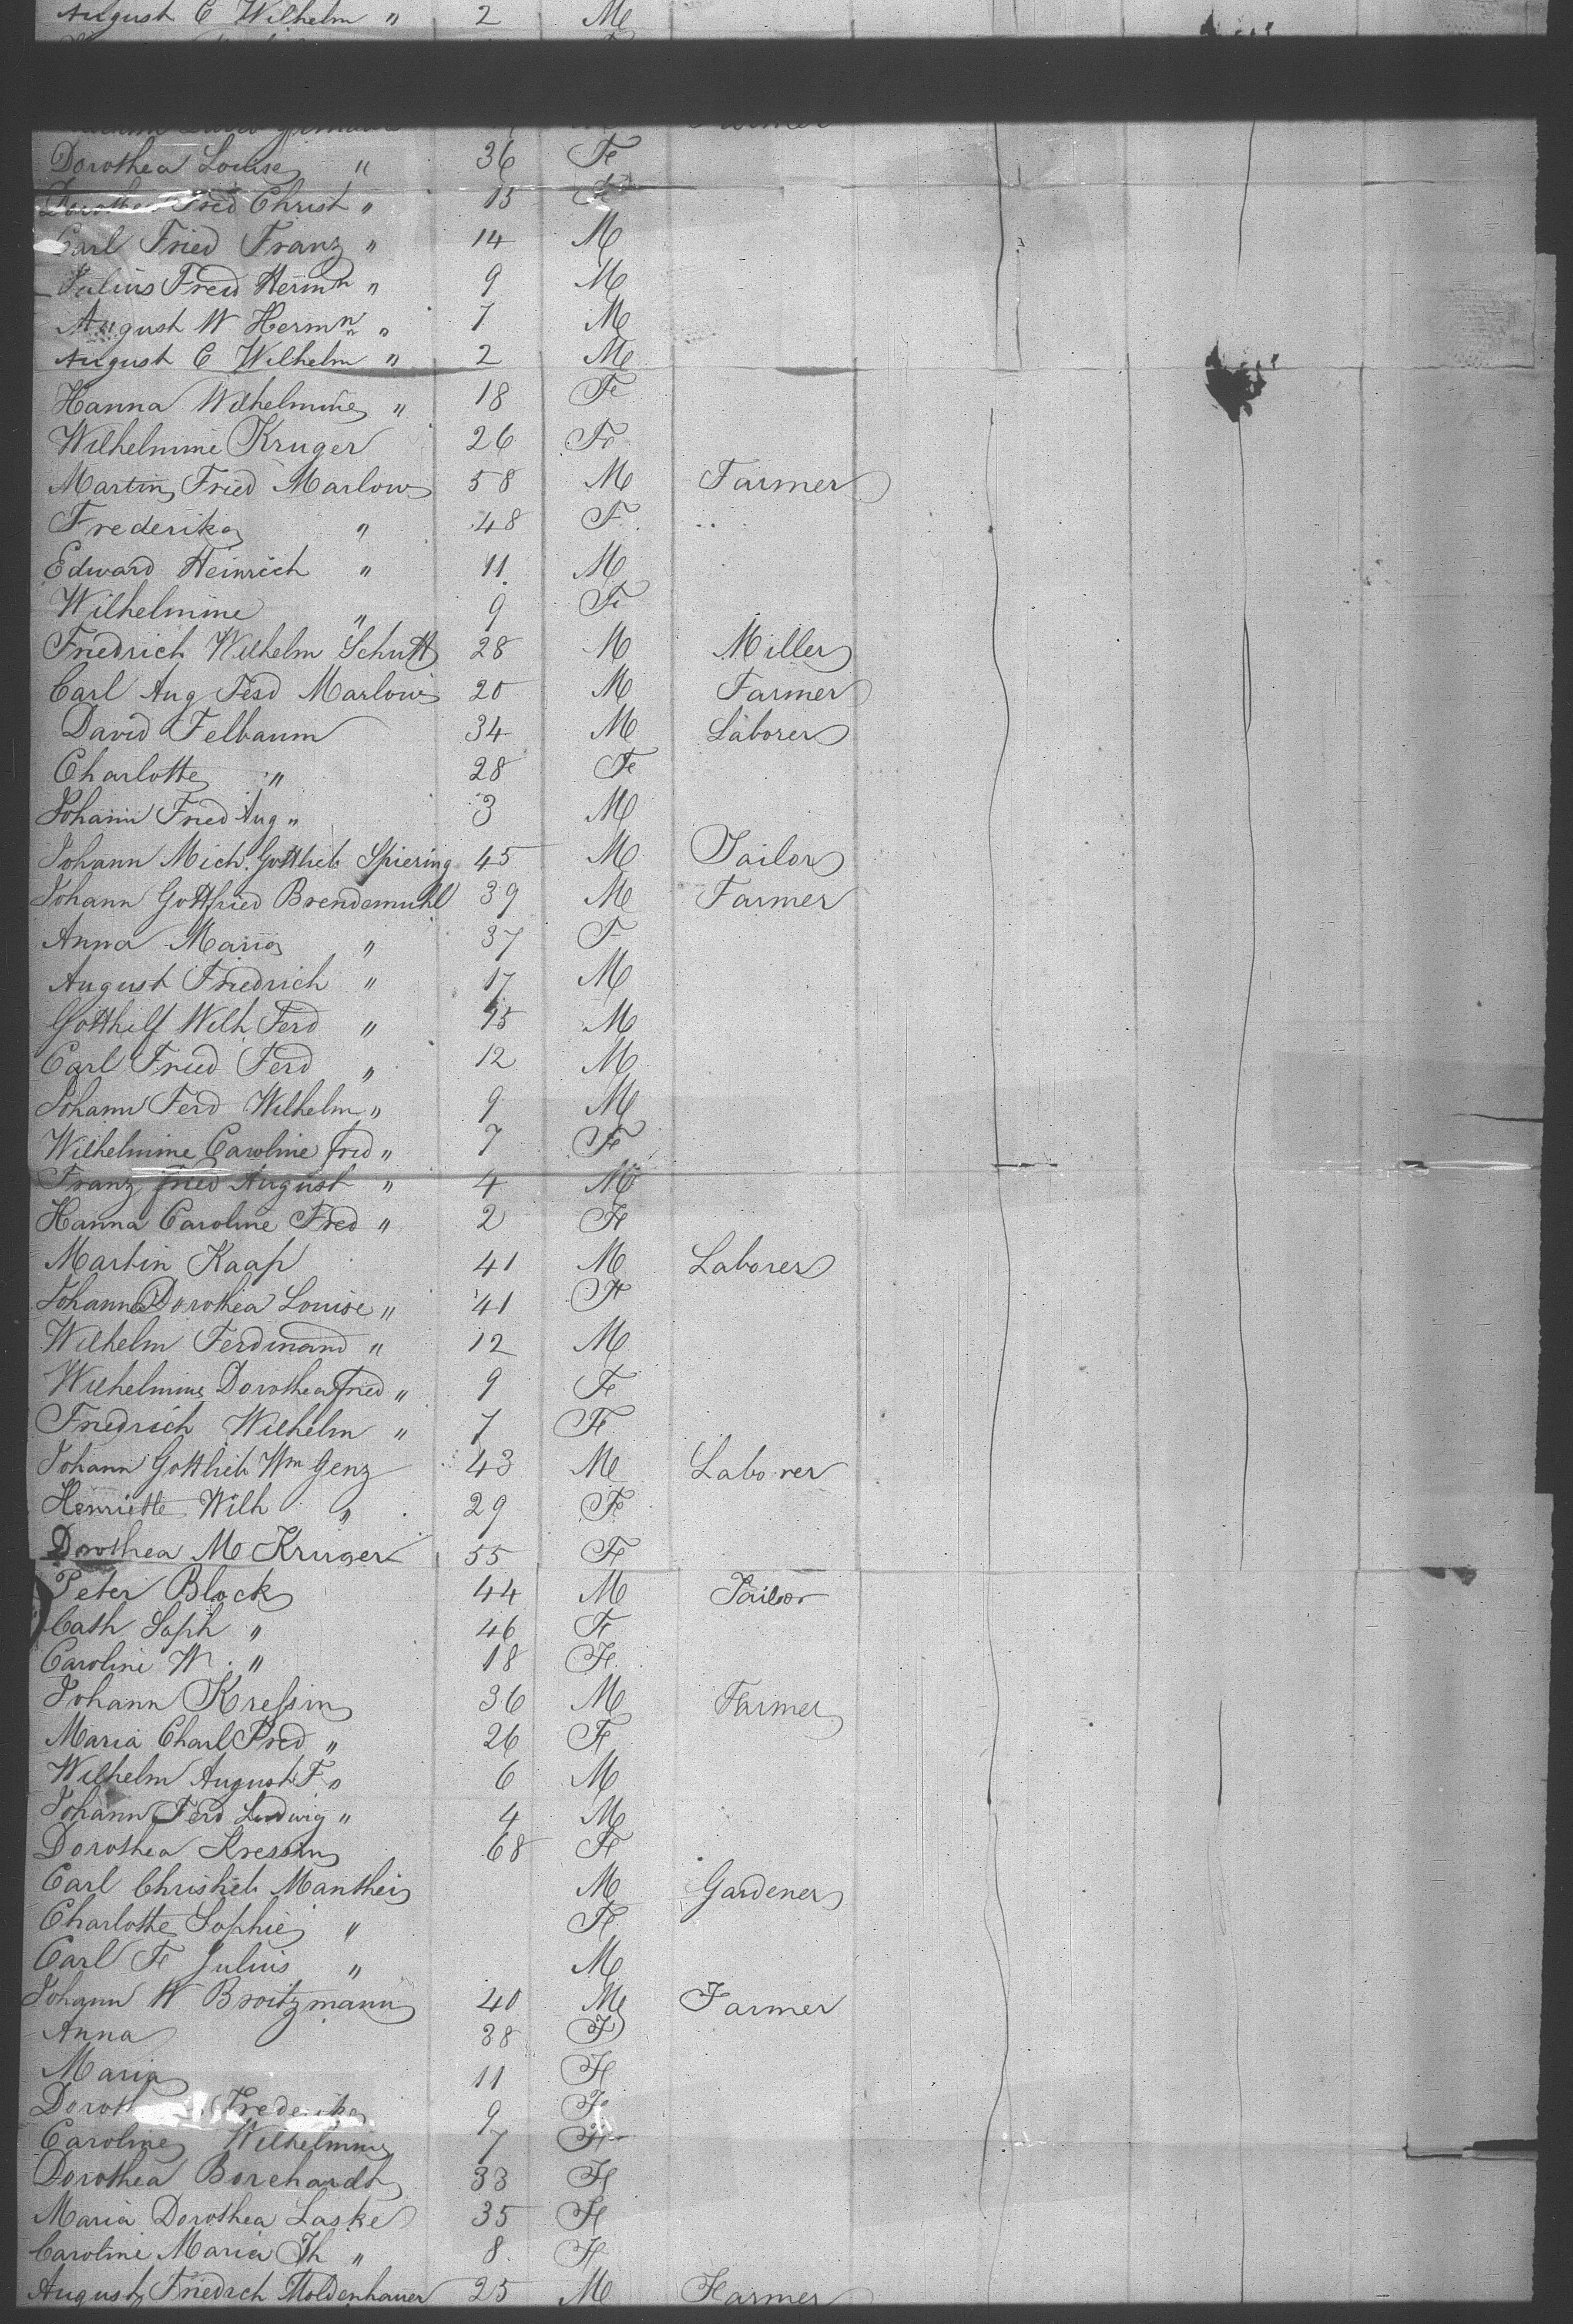 August C Wilhelm " 2 M
Farmer
Dorothea Louise " 36 Fe
Dorothea Fred Christ " 15 Fe
Carl Fried Franz " 14 M
Julius Fried Hermn " 9 M
August W Hermn " 7 M
August C Wilhelm " 2 M
Hanna Wilhelmine " 18 Fe
Wilhelmine Kruger 26 Fe
Martin Fried Marlow 58 M Farmer
Frederika " 48 F
Edward Heinrich " 11 M
Wilhelmine " 9 Fe
Friedrich Wilhelm Schutt 28 M Miller
Carl Aug Ferd Marlow 20 M Farmer
David Felbaum 34 M Laborer
Charlotte " 28 Fe
Johann Fried Aug " 3 M
Johann Mich. Gottlieb Spiering 45 M Tailor
Johann Gottfried Brendemuhl 39 M Farmer
Anna Maria " 37 F
August Friedrich " 17 M
Gotthilf Wilh Ferd " 15 M
Carl Fried Ferd " 12 M
Johann Ferd Wilhelm " 9 M
Wilhelmine Caroline Fred " 7 Fe
Franz Fried August " 4 M
Hanna Caroline Fred " 2 Fe
Martin Kaap 41 M Laborer
Johanna Dorothea Louise " 41 Fe
Wilhelm Ferdinand " 12 M
Wilhelmine Dorothea Fried " 9 Fe
Friedrich Wilhelm " 7 Fe
Johann Gottlieb Wm Genz 43 M Laborer
Henriette Wilh " 29 Fe
Dorothea M Kruger 55 Fe
Peter Block 44 M Tailor
Cath Soph " 46 Fe
Caroline W. " 18 Fe
Johann Kressin 36 M Farmer
Maria Charl Fred " 26 Fe
Wilhelm August F " 6 M
Johann Ferd Ludwig " 4 M
Dorothea Kressin 68 Fe
Carl Christlieb Manthei M Gardener
Charlotte Sophie " Fe
Carl F Julius " M
Johann W Broitzmann 40 M Farmer
Anna 38 F
Maria 11 Fe
Dorot Frederika 9 Fe
Caroline Wilhelmine 7 Fe
Dorothea Borchardt 33 Fe
Maria Dorothea Laske 35 Fe
Caroline Maria Th " 8 Fe
August Friedrich Moldenhauer 25 M Farmer